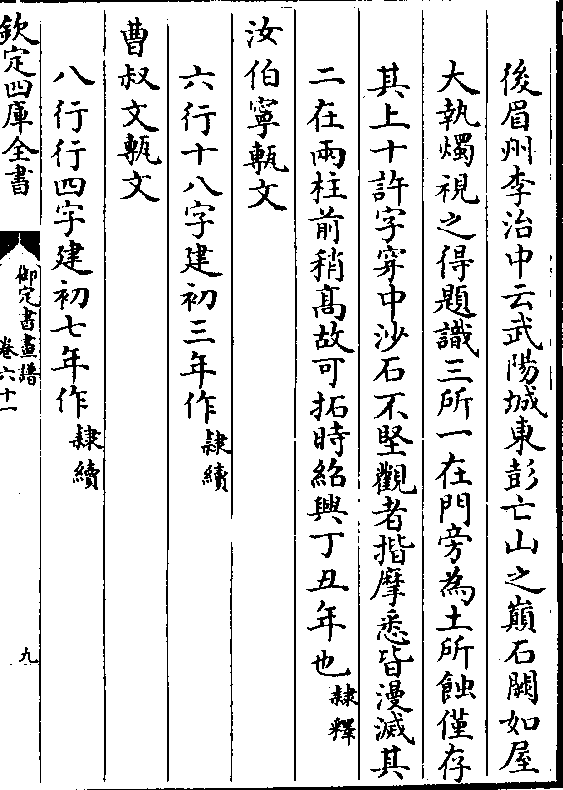 後眉州李治中云武陽城東彭亡山之巔石闕如屋
大執燭視之得題識三所一在門旁為土所蝕僅存
其上十許字穿中沙石不堅觀者揩摩悉皆漫滅其
二在兩柱前稍高故可拓時紹興丁丑年也隸釋
汝伯寧甎文
六行十八字建初三年作隸續
曹叔文甎文
八行行四字建初七年作隸續
欽定四庫全書
御定書畫譜
卷六十一
九